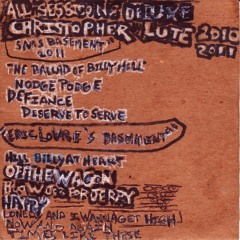 ALL SESSIONS DELUXE
CHRISTOPHER LUTE 2010
2011
SMS BASEMENT
2011
THE BALLAD OF BILLY HELL
HODGE PODGE
DEFIANCE
DESERVE TO SERVE
ERIC LOVRE'S BASEMENT
HILL BILLY AT HEART
OFF THE WAGON
BLOW FOR JERRY
HAPPY
LONELY AND I WANNA GET HIGH
NOW AND AGAIN
TIMES LIKE THESE